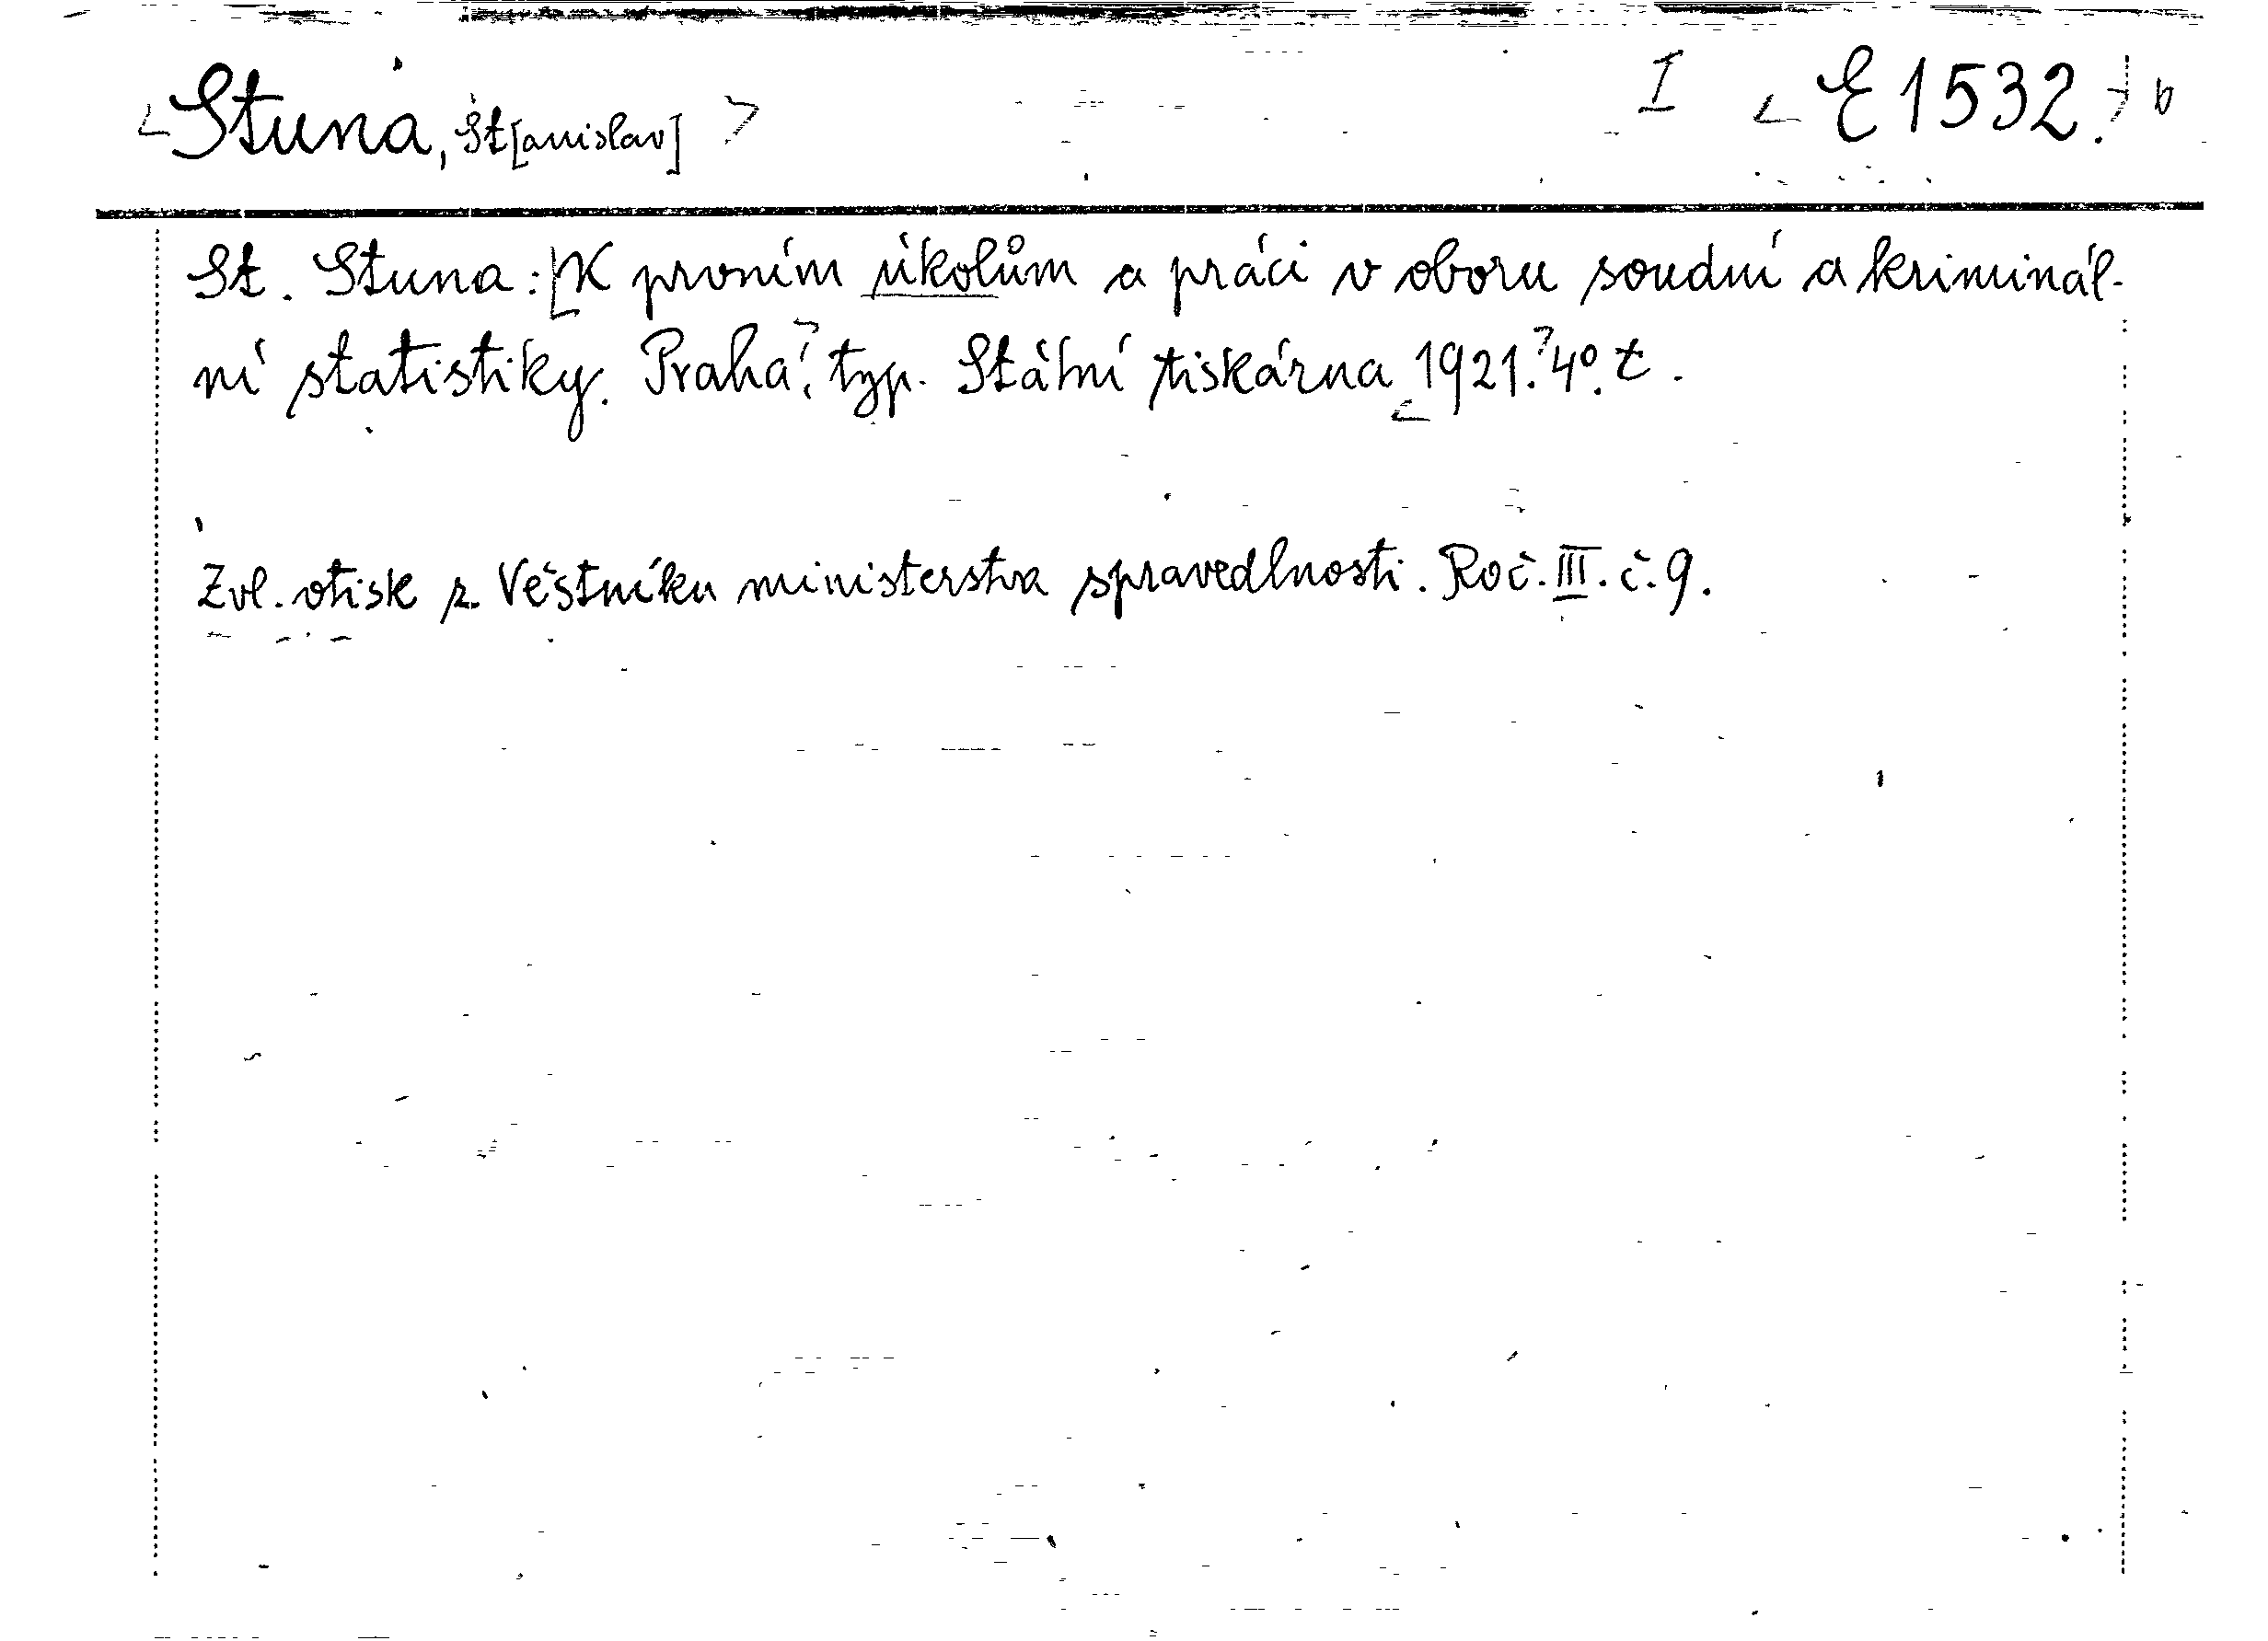 Stuna, St[anislav] I E 1532. b
St. Stuna: K prvním úkolům a práci v oboru soudní a kriminál-
ní statistiky. Praha, typ. Státní tiskárna 1921. 4°. t.
Zvl. otisk z Věstníku ministerstva spravedlnosti. Roč. III. č. 9.